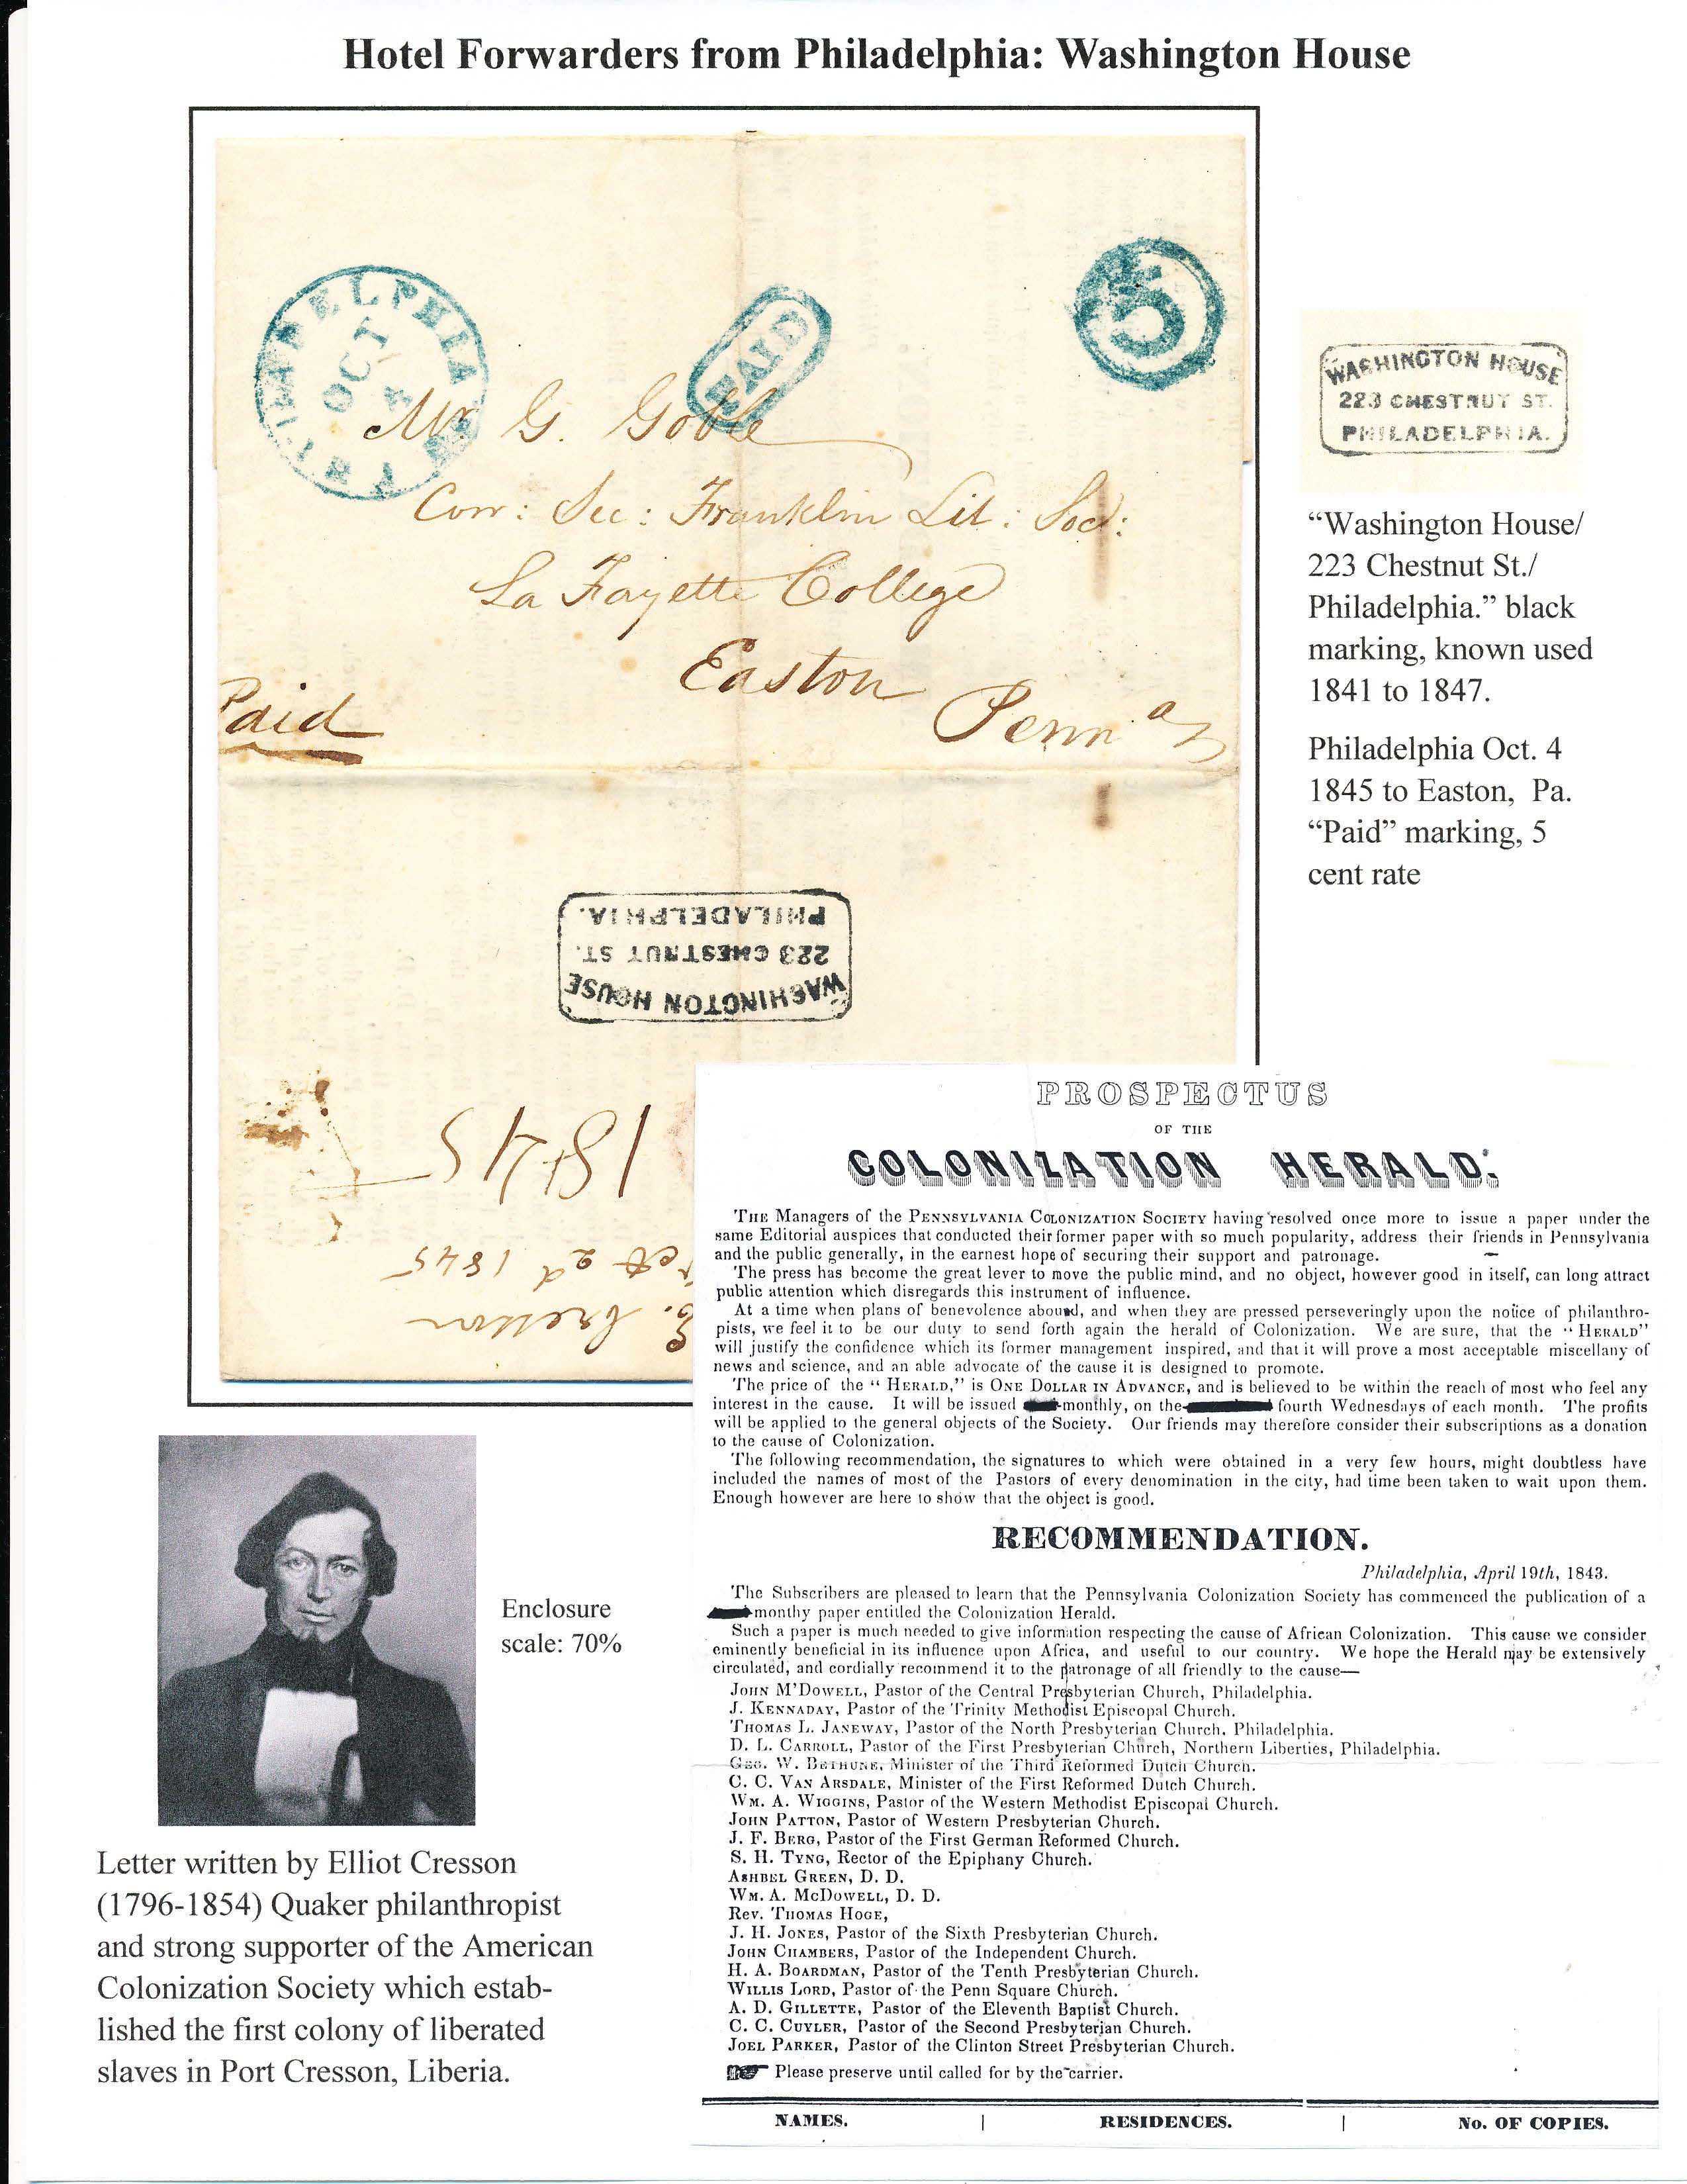 Hotel Forwarders from Philadelphia: Washington House
PHILADELPHIA
OCT
4
PAID
5
Mr G. Goble
Corr: Sec: Franklin Lit: Soc:
La Fayette College
Easton
Penn a
Paid
WASHINGTON HOUSE
223 CHESTNUT ST.
PHILADELPHIA.
1845
Oct 2d 1845
E. Cresson
WASHINGTON HOUSE
223 CHESTNUT ST.
PHILADELPHIA.
“Washington House/
223 Chestnut St./
Philadelphia.” black
marking, known used
1841 to 1847.
Philadelphia Oct. 4
1845 to Easton, Pa.
“Paid” marking, 5
cent rate
PROSPECTUS
OF THE
COLONIZATION HERALD.
THE Managers of the PENNSYLVANIA COLONIZATION SOCIETY having resolved once more to issue a paper under the
same Editorial auspices that conducted their former paper with so much popularity, address their friends in Pennsylvania
and the public generally, in the earnest hope of securing their support and patronage.
The press has become the great lever to move the public mind, and no object, however good in itself, can long attract
public attention which disregards this instrument of influence.
At a time when plans of benevolence abound, and when they are pressed perseveringly upon the notice of philanthro-
pists, we feel it to be our duty to send forth again the herald of Colonization. We are sure, that the “HERALD”
will justify the confidence which its former management inspired, and that it will prove a most acceptable miscellany of
news and science, and an able advocate of the cause it is designed to promote.
The price of the “HERALD,” is ONE DOLLAR IN ADVANCE, and is believed to be within the reach of most who feel any
interest in the cause. It will be issued monthly, on the fourth Wednesdays of each month. The profits
will be applied to the general objects of the Society. Our friends may therefore consider their subscriptions as a donation
to the cause of Colonization.
The following recommendation, the signatures to which were obtained in a very few hours, might doubtless have
included the names of most of the Pastors of every denomination in the city, had time been taken to wait upon them.
Enough however are here to show that the object is good.
RECOMMENDATION.
Philadelphia, April 19th, 1843.
The Subscribers are pleased to learn that the Pennsylvania Colonization Society has commenced the publication of a
monthy paper entitled the Colonization Herald.
Such a paper is much needed to give information respecting the cause of African Colonization. This cause we consider
eminently beneficial in its influence upon Africa, and useful to our country. We hope the Herald may be extensively
circulated, and cordially recommend it to the patronage of all friendly to the cause—
JOHN M'DOWELL, Pastor of the Central Presbyterian Church, Philadelphia.
J. KENNADAY, Pastor of the Trinity Methodist Episcopal Church.
THOMAS L. JANEWAY, Pastor of the North Presbyterian Church, Philadelphia.
D. L. CARROLL, Pastor of the First Presbyterian Church, Northern Liberties, Philadelphia.
GEO. W. BETHUNE, Minister of the Third Reformed Dutch Church.
C. C. VAN ARSDALE, Minister of the First Reformed Dutch Church.
WM. A. WIGGINS, Pastor of the Western Methodist Episcopal Church.
JOHN PATTON, Pastor of Western Presbyterian Church.
J. F. BERG, Pastor of the First German Reformed Church.
S. H. TYNG, Rector of the Epiphany Church.
ASHBEL GREEN, D. D.
WM. A. MCDOWELL, D. D.
Rev. THOMAS HOGE,
J. H. JONES, Pastor of the Sixth Presbyterian Church.
JOHN CHAMBERS, Pastor of the Independent Church.
H. A. BOARDMAN, Pastor of the Tenth Presbyterian Church.
WILLIS LORD, Pastor of the Penn Square Church.
A. D. GILLETTE, Pastor of the Eleventh Baptist Church.
C. C. CUYLER, Pastor of the Second Presbyterian Church.
JOEL PARKER, Pastor of the Clinton Street Presbyterian Church.
Please preserve until called for by the carrier.
NAMES. | RESIDENCES. | No. OF COPIES.
Enclosure
scale: 70%
Letter written by Elliot Cresson
(1796-1854) Quaker philanthropist
and strong supporter of the American
Colonization Society which estab-
lished the first colony of liberated
slaves in Port Cresson, Liberia.